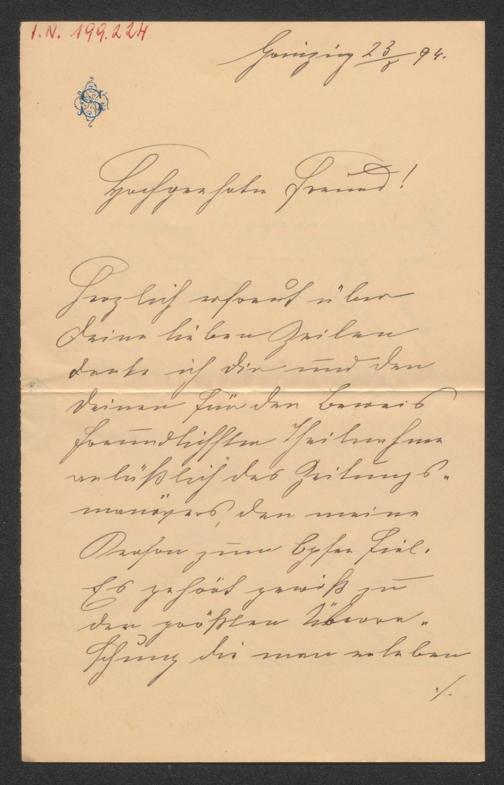 I.N. 199.224
Grinzing 23/X 94.
S
Hochgeehrter Freund!
Herzlich erfreut über
Deine lieben Zeilen
danke ich Dir und den
Deinen für den Beweis
freundlichster Theilnahme
anläßlich des Zeitungs-
manövers, dem meine
Person zum Opfer fiel.
Es gehört gewiß zu
den größten Überra-
schung die man erleben
./.